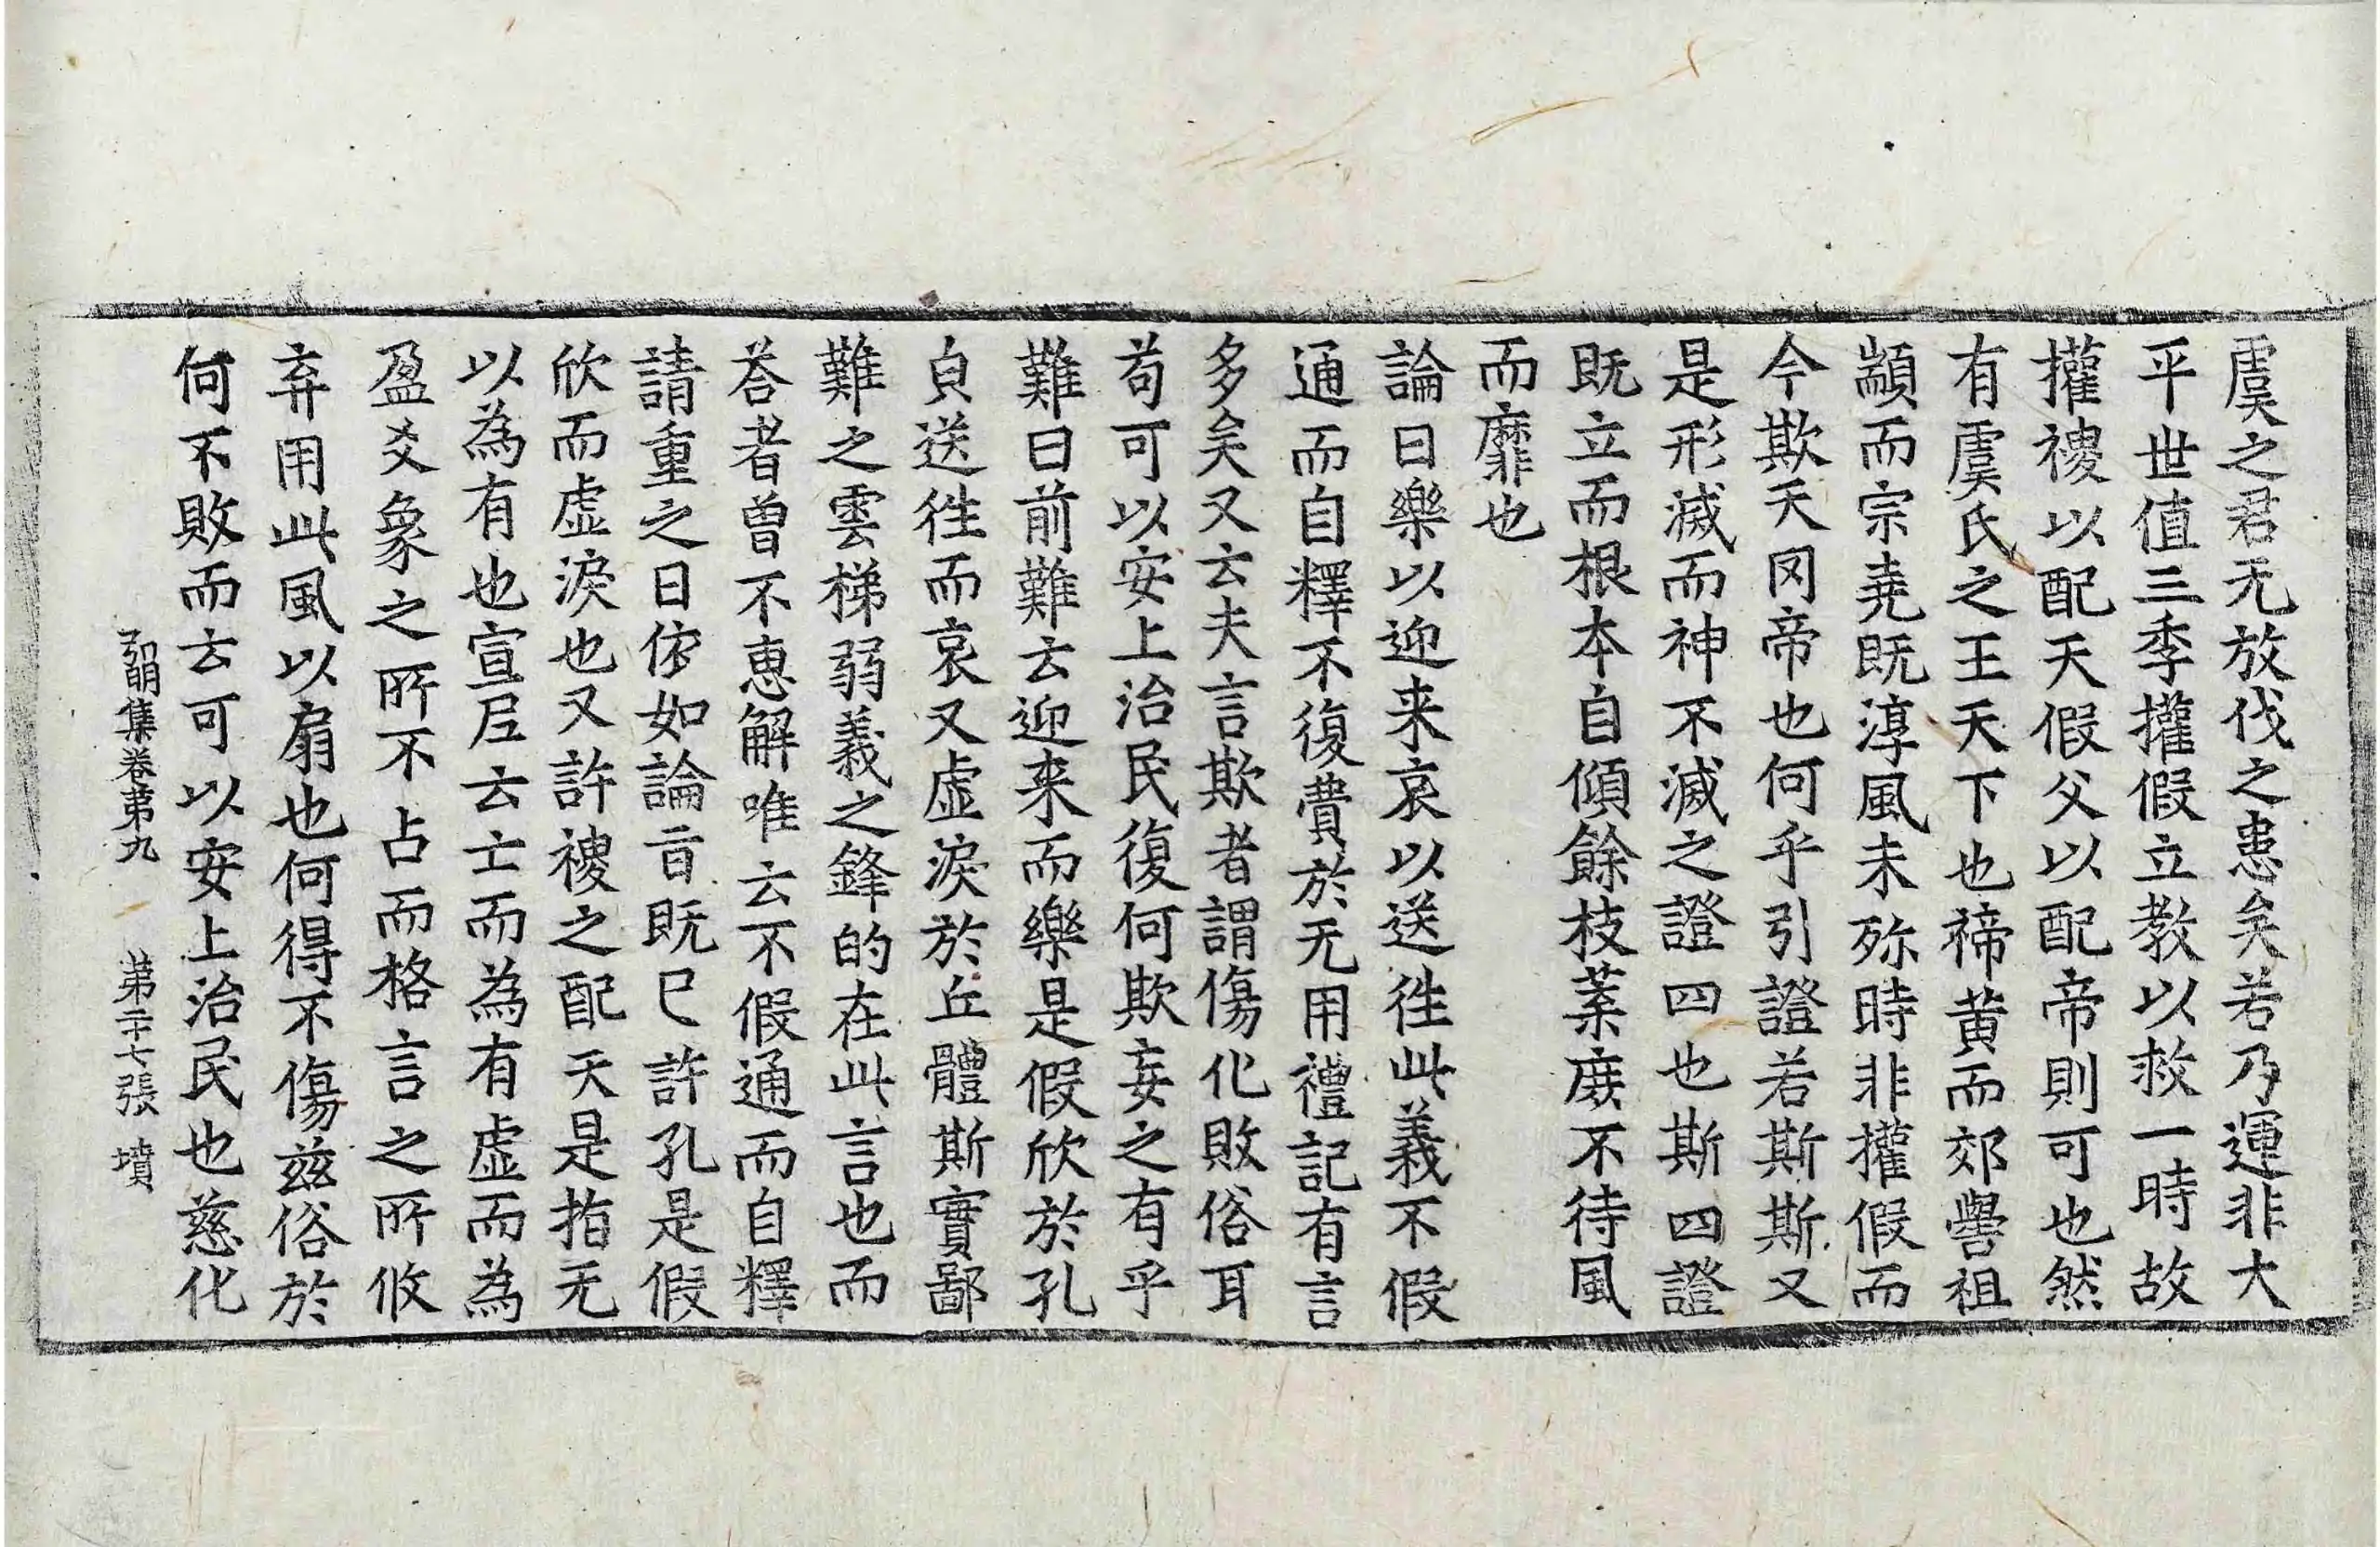 虞之君无放伐之患矣若乃運非大
平世值三季權假立教以救一時故
權禝以配天假父以配帝則可也然
有虞氏之王天下也禘黄而郊嚳祖
顓而宗堯既淳風未殄時非權假而
今欺天罔帝也何乎引證若斯斯又
是形滅而神不滅之證四也斯四證
既立而根本自傾餘枝葉庶不待風
而靡也
論曰樂以迎来哀以送徃此義不假
通而自釋不復費於无用禮記有言
多矣又云夫言欺者謂傷化敗俗耳
苟可以安上治民復何欺妄之有乎
難曰前難云迎来而樂是假欣於孔
貞送徃而哀又虚淚於丘體斯實鄙
難之雲梯弱義之鋒的在此言也而
荅者曾不惠解唯云不假通而自釋
請重之曰依如論旨既已許孔是假
欣而虚淚也又許禝之配天是指无
以為有也宣尼云亡而為有虚而為
盈爻象之所不占而格言之所攸
弃用此風以扇也何得不傷兹俗於
何不敗而云可以安上治民也慈化
弘明集卷第九 第二十七張 墳